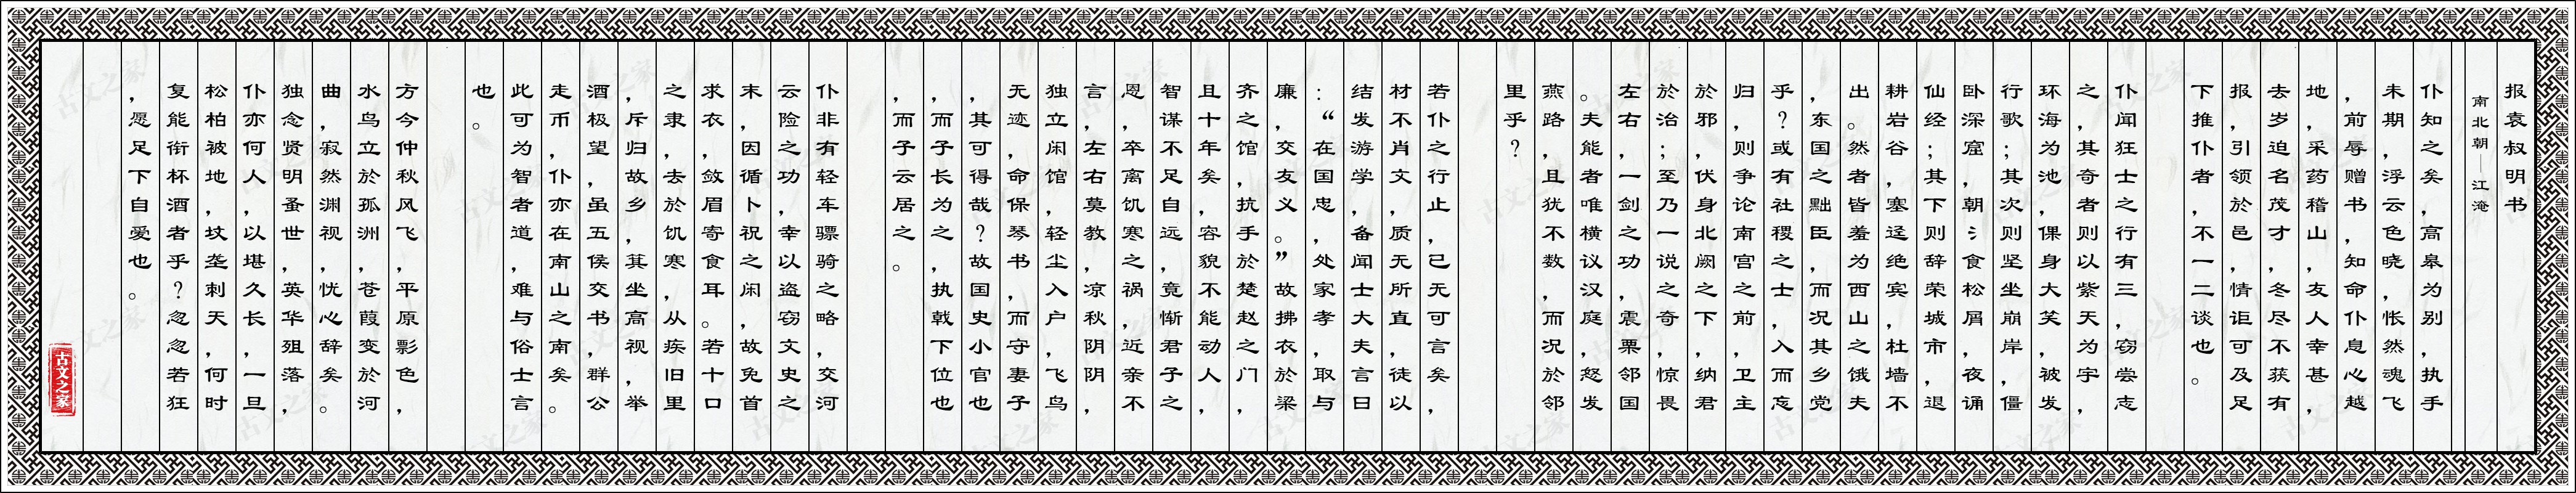 报袁叔明书
南北朝—江淹
仆知之矣，高皋为别，执手
未期，浮云色晓，怅然魂飞
，前辱赠书，知命仆息心越
地，采药稽山，友人幸甚，
去岁迫名茂才，冬尽不获有
报，引领於邑，情讵可及足
下推仆者，不一二谈也。
仆闻狂士之行有三，窃尝志
之，其奇者则以紫天为宇，
环海为池，倮身大笑，被发
行歌；其次则坚坐崩岸，僵
卧深窟，朝氵食松屑，夜诵
仙经；其下则辞荣城市，退
耕岩谷，塞迳绝宾，杜墙不
出。然者皆羞为西山之饿夫
，东国之黜臣，而况其乡党
乎？或有社稷之士，入而忘
归，则争论南宫之前，卫主
於邪，伏身北阙之下，纳君
於治；至乃一说之奇，惊畏
左右，一剑之功，震栗邻国
。夫能者唯横议汉庭，怒发
燕路，且犹不数，而况於邻
里乎？
若仆之行止，已无可言矣，
材不肖文，质无所直，徒以
结发游学，备闻士大夫言曰
：“在国忠，处家孝，取与
廉，交友义。”故拂衣於梁
齐之馆，抗手於楚赵之门，
且十年矣，容貌不能动人，
智谋不足自远，竟惭君子之
恩，卒离饥寒之祸，近亲不
言，左右莫教，凉秋阴阴，
独立闲馆，轻尘入户，飞鸟
无迹，命保琴书，而守妻子
，其可得哉？故国史小官也
，而子长为之，执戟下位也
，而子云居之。
仆非有轻车骠骑之略，交河
云险之功，幸以盗窃文史之
末，因循卜祝之闲，故免首
求衣，敛眉寄食耳。若十口
之隶，去於饥寒，从疾旧里
，斥归故乡，萁坐高视，举
酒极望，虽五侯交书，群公
走币，仆亦在南山之南矣。
此可为智者道，难与俗士言
也。
方今仲秋风飞，平原影色，
水鸟立於孤洲，苍葭变於河
曲，寂然渊视，忧心辞矣。
独念贤明蚤世，英华殂落，
仆亦何人，以堪久长，一旦
松柏被地，坟垄刺天，何时
复能衔杯酒者乎？忽忽若狂
，愿足下自爱也。
古文之家